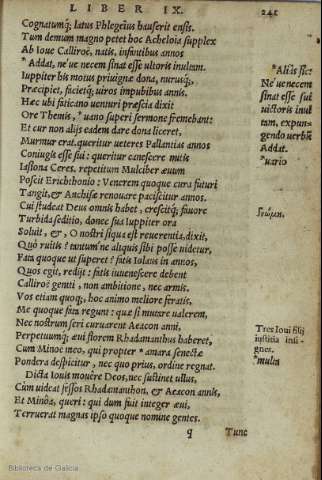 LIBER IX. 241
Cognatumq; latus Phlegeïus hauserit ensis.
Tum demum magno petet hoc Acheloia supplex
Ab Ioue Calliroë, natis, infantibus annos
*Addat, ne'ue necem sinat esse ultoris inultam.
Iuppiter his motus priuignæ dona, nurusq;,
Præcipiet, facietq; uiros impubibus annis.
Hæc ubi faticano uenturi præscia dixit
Ore Themis, *uano superi sermone fremebant:
Et cur non alijs eadem dare dona liceret,
Murmur erat. queritur ueteres Pallantias annos
Coniugis esse sui: queritur canescere mitis
Iasiona Ceres. repetitum Mulciber æuum
Poscit Erichthonio: Venerem quoque cura futuri
Tangit, & Anchisæ renouare paciscitur annos.
Cui studeat Deus omnis habet, crescitq; fauore
Turbida seditio, donec sua Iuppiter ora
Soluit, &, O nostri si qua est reuerentia, dixit,
Quò ruitis? tantum'ne aliquis sibi posse uidetur,
Fata quoque ut superet? fatis Iolaus in annos,
Quos egit, redijt: fatis iuuenescere debent
Calliroë geniti, non ambitione, nec armis.
Vos etiam quoq;, hoc animo meliore feratis,
Me quoque fata regunt: quæ si mutare ualerem,
Nec nostrum seri curuarent Aeacon anni,
Perpetuumq; æui florem Rhadamanthus haberet,
Cum Minoe meo, qui propter *amara senectæ
Pondera despicitur, nec quo prius, ordine regnat.
Dicta Iouis mouêre Deos, nec sustinet ullus,
Cùm uideat fessos Rhadamanthon, & Aeacon annis,
Et Minoa, queri: qui dum fuit integer æui,
Terruerat magnas ipso quoque nomine gentes.
q Tunc
*Aliàs sic:
Ne ue necem
sinat esse sui
uictoris inul
tam, expun-
gendo uerbū
Addat.
*uario
Tres Ioui filij
iustitia insi-
gnes.
*multa
Biblioteca de Galicia